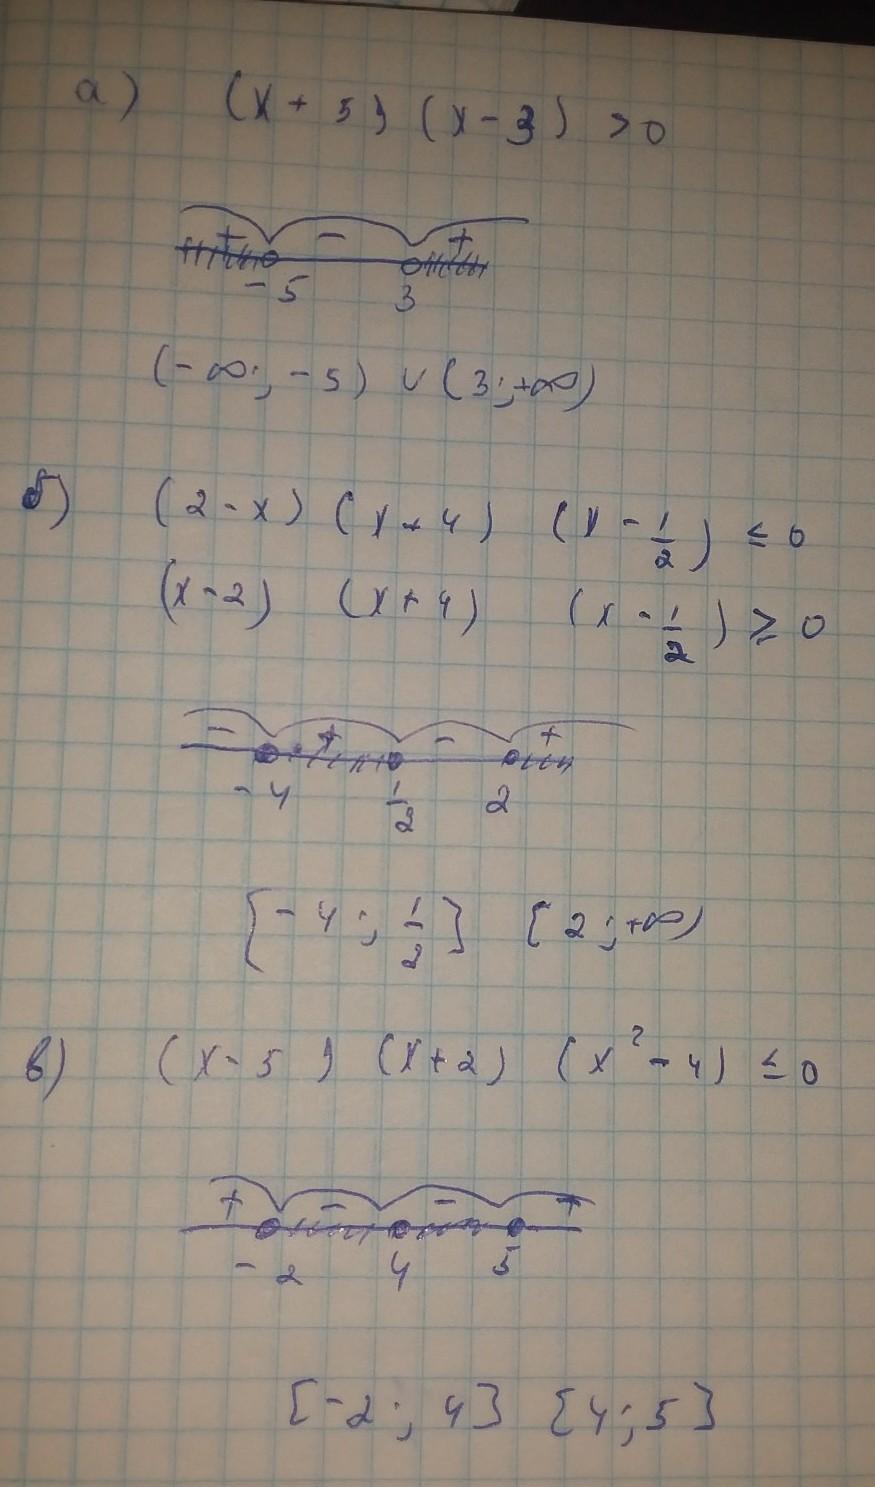 а) (x + 5) (x - 3) > 0
+ - +
-5 3
(-∞; -5) ∪ (3; +∞)
б) (2 - x) (x + 4) (x - 1/2) ≤ 0
(x - 2) (x + 4) (x - 1/2) ≥ 0
- + - +
-4 1/2 2
[-4; 1/2] [2; +∞)
в) (x - 5) (x + 2) (x² - 4) ≤ 0
+ - - +
-2 4 5
[-2; 4] [4; 5]